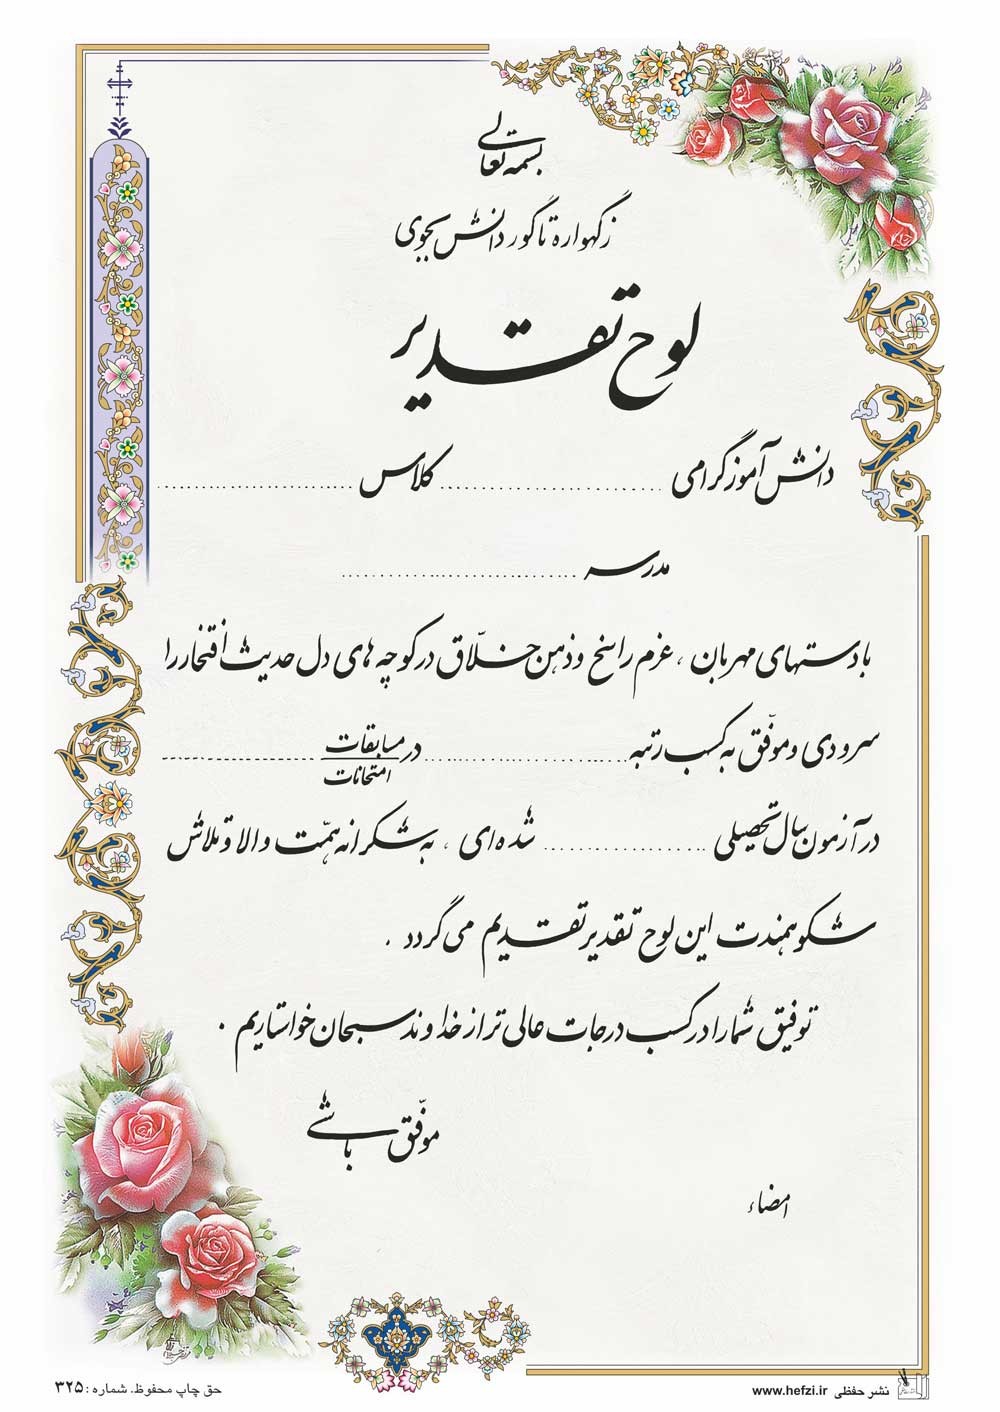 بسمه تعالی
زگهواره تا گور دانش بجوی
لوح تقدیر
دانش آموز گرامی .................... کلاس ....................
مدرسه ....................
با دستهای مهربان ، عزم راسخ و ذهن خلّاق در کوچه های دل حدیث افتخار را
سرودی و موفّق به کسب رتبه .................... در مسابقات ....................
امتحانات
در آزمون سال تحصیلی .................... شده ای ، به شکرانه همّت والا و تلاش
شکوهمندت این لوح تقدیر تقدیم می گردد .
توفیق شما را در کسب درجات عالی تر از خداوند سبحان خواستاریم .
موفّق باشی
امضاء
نشر حفظی www.hefzi.ir
حق چاپ محفوظ. شماره : ۳۲۵